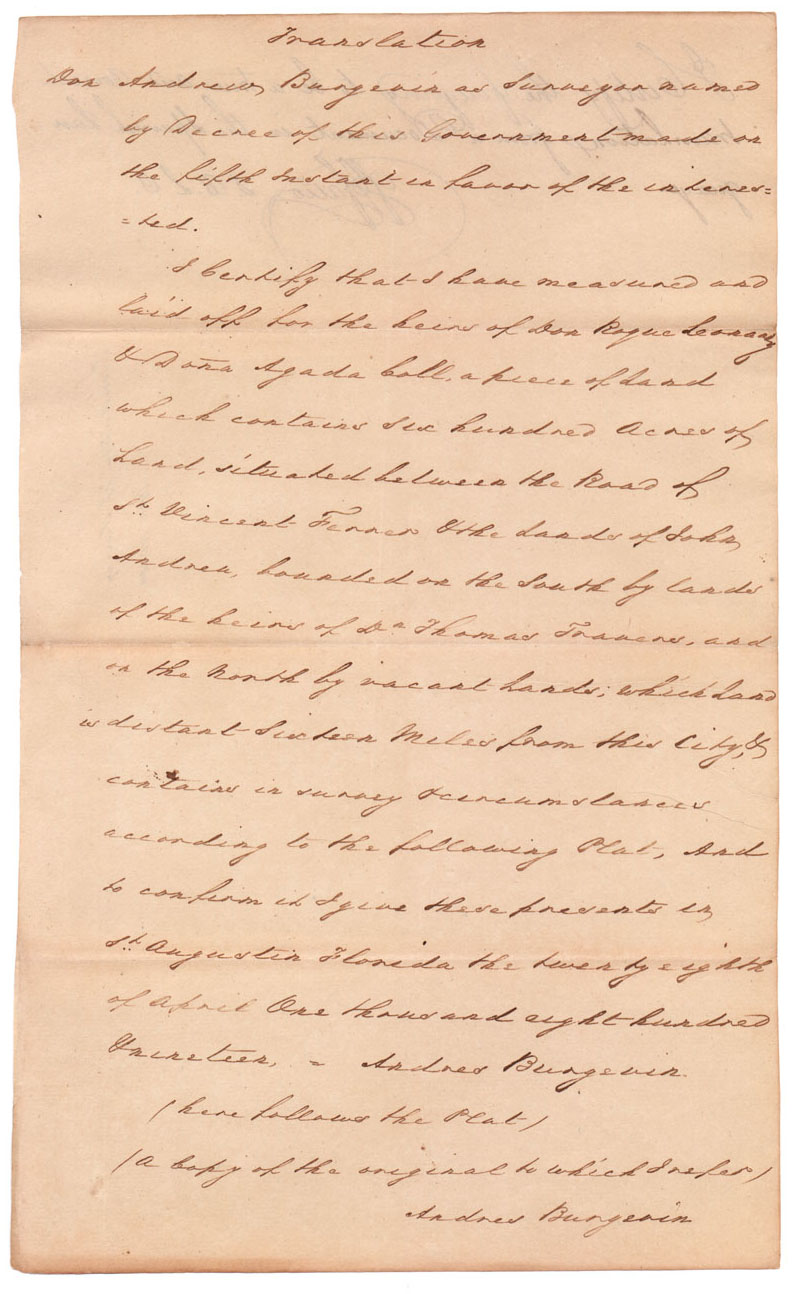 Translation
Don Andrew Burgevin as Surveyor named
by Decree of this Government made on
the fifth Instant in favor of the interes=
=ted.
I Certify that I have measured and
laid off for the heirs of Don Roque Leonardy
& Doña Agada Coll, a piece of Land
which contains Six hundred Acres of
Land, situated between the Road of
St. Vincent Ferrer & the Lands of John
Andreu, bounded on the South by Lands
of the heirs of Dn Thomas Travers, and
on the North by vacant Lands; which Land
is distant Sixteen Miles from this City, &
contains in survey & circumstances
according to the following Plat, And
to confirm it I give these presents in
St. Augustin Florida the twenty eighth
of April One thousand eight hundred
& nineteen, = Andres Burgevin
(here follows the Plat)
(A Copy of the original to which I refer)
Andres Burgevin